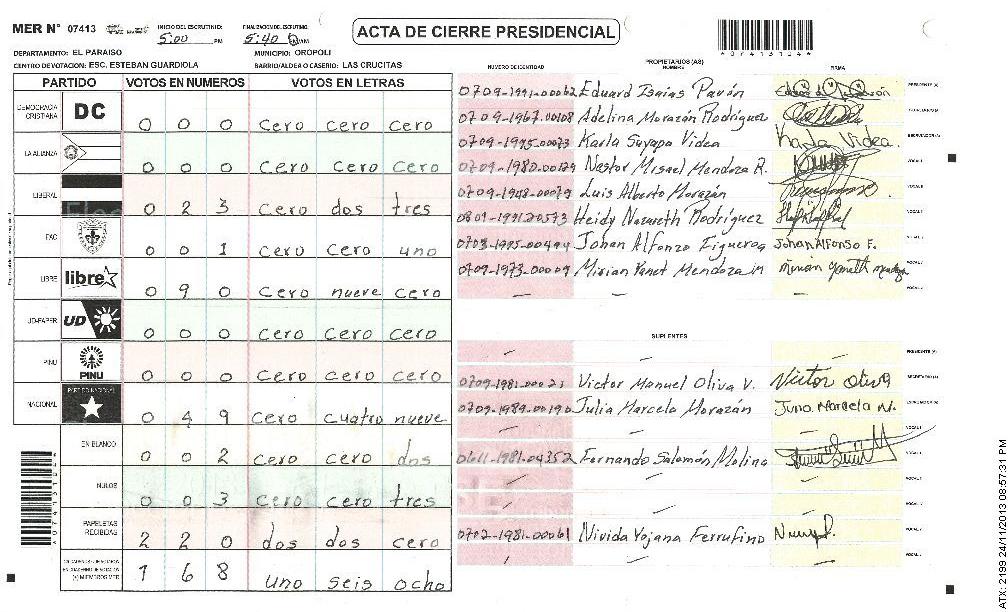 MER N° 07413
INICIO DEL ESCRUTINIO: 5:00 PM
FINALIZACION DEL ESCRUTINIO: 5:40 PM
ACTA DE CIERRE PRESIDENCIAL
07413134
DEPARTAMENTO: EL PARAISO MUNICIPIO: OROPOLI
CENTRO DE VOTACION: ESC. ESTEBAN GUARDIOLA BARRIO/ALDEA O CASERIO: LAS CRUCITAS
PARTIDO VOTOS EN NUMEROS VOTOS EN LETRAS
DEMOCRACIA CRISTIANA DC 0 0 0 cero cero cero
LA ALIANZA 0 0 0 cero cero cero
LIBERAL 0 2 3 cero dos tres
PAC 0 0 1 cero cero uno
LIBRE libre 0 9 0 cero nueve cero
UD-FAPER UD 0 0 0 cero cero cero
PINU PINU 0 0 0 cero cero cero
NACIONAL PARTIDO NACIONAL 0 4 9 cero cuatro nueve
EN BLANCO 0 0 2 cero cero dos
NULOS 0 0 3 cero cero tres
PAPELETAS RECIBIDAS 2 2 0 dos dos cero
(+) MIEMBROS MER 1 6 8 uno seis ocho
NUMERO DE IDENTIDAD PROPIETARIOS (AS) NOMBRE FIRMA
0709-1991-00062 Eduard Isaias Pavón PRESIDENTE (A)
0709-1967-00108 Adelina Morazón Rodriguez SECRETARIO (A)
0709-1995-00073 Karla Suyapa Videa Karla Videa. ESCRUTADOR (A)
0709-1980-00129 Nestor Misael Mendoza R. VOCAL I
0709-1948-00079 Luis Alberto Morazán VOCAL II
0801-1991-20573 Heidy Nazareth Rodríguez VOCAL
0703-1995-00494 Johan Alfonzo Figueroa Johan Alfonso F. VOCAL
0709-1973-00009 Mirian Yanet Mendoza M Mirian Yaneth Mendoza VOCAL
— — — VOCAL
SUPLENTES
— — — PRESIDENTE (A)
0709-1981-00023 Victor Manuel Oliva V. Victor Oliva SECRETARIO (A)
0709-1989-00190 Julia Marcela Morazán Marcela M. ESCRUTADOR (A)
— — — VOCAL I
0611-1981-04352 Fernando Salomón Molina VOCAL
— — VOCAL
— — VOCAL
0702-1981-00061 Nivida Yojana Ferrufino VOCAL
— — VOCAL
ATX: 2199 24/11/2013 08:57:31 PM